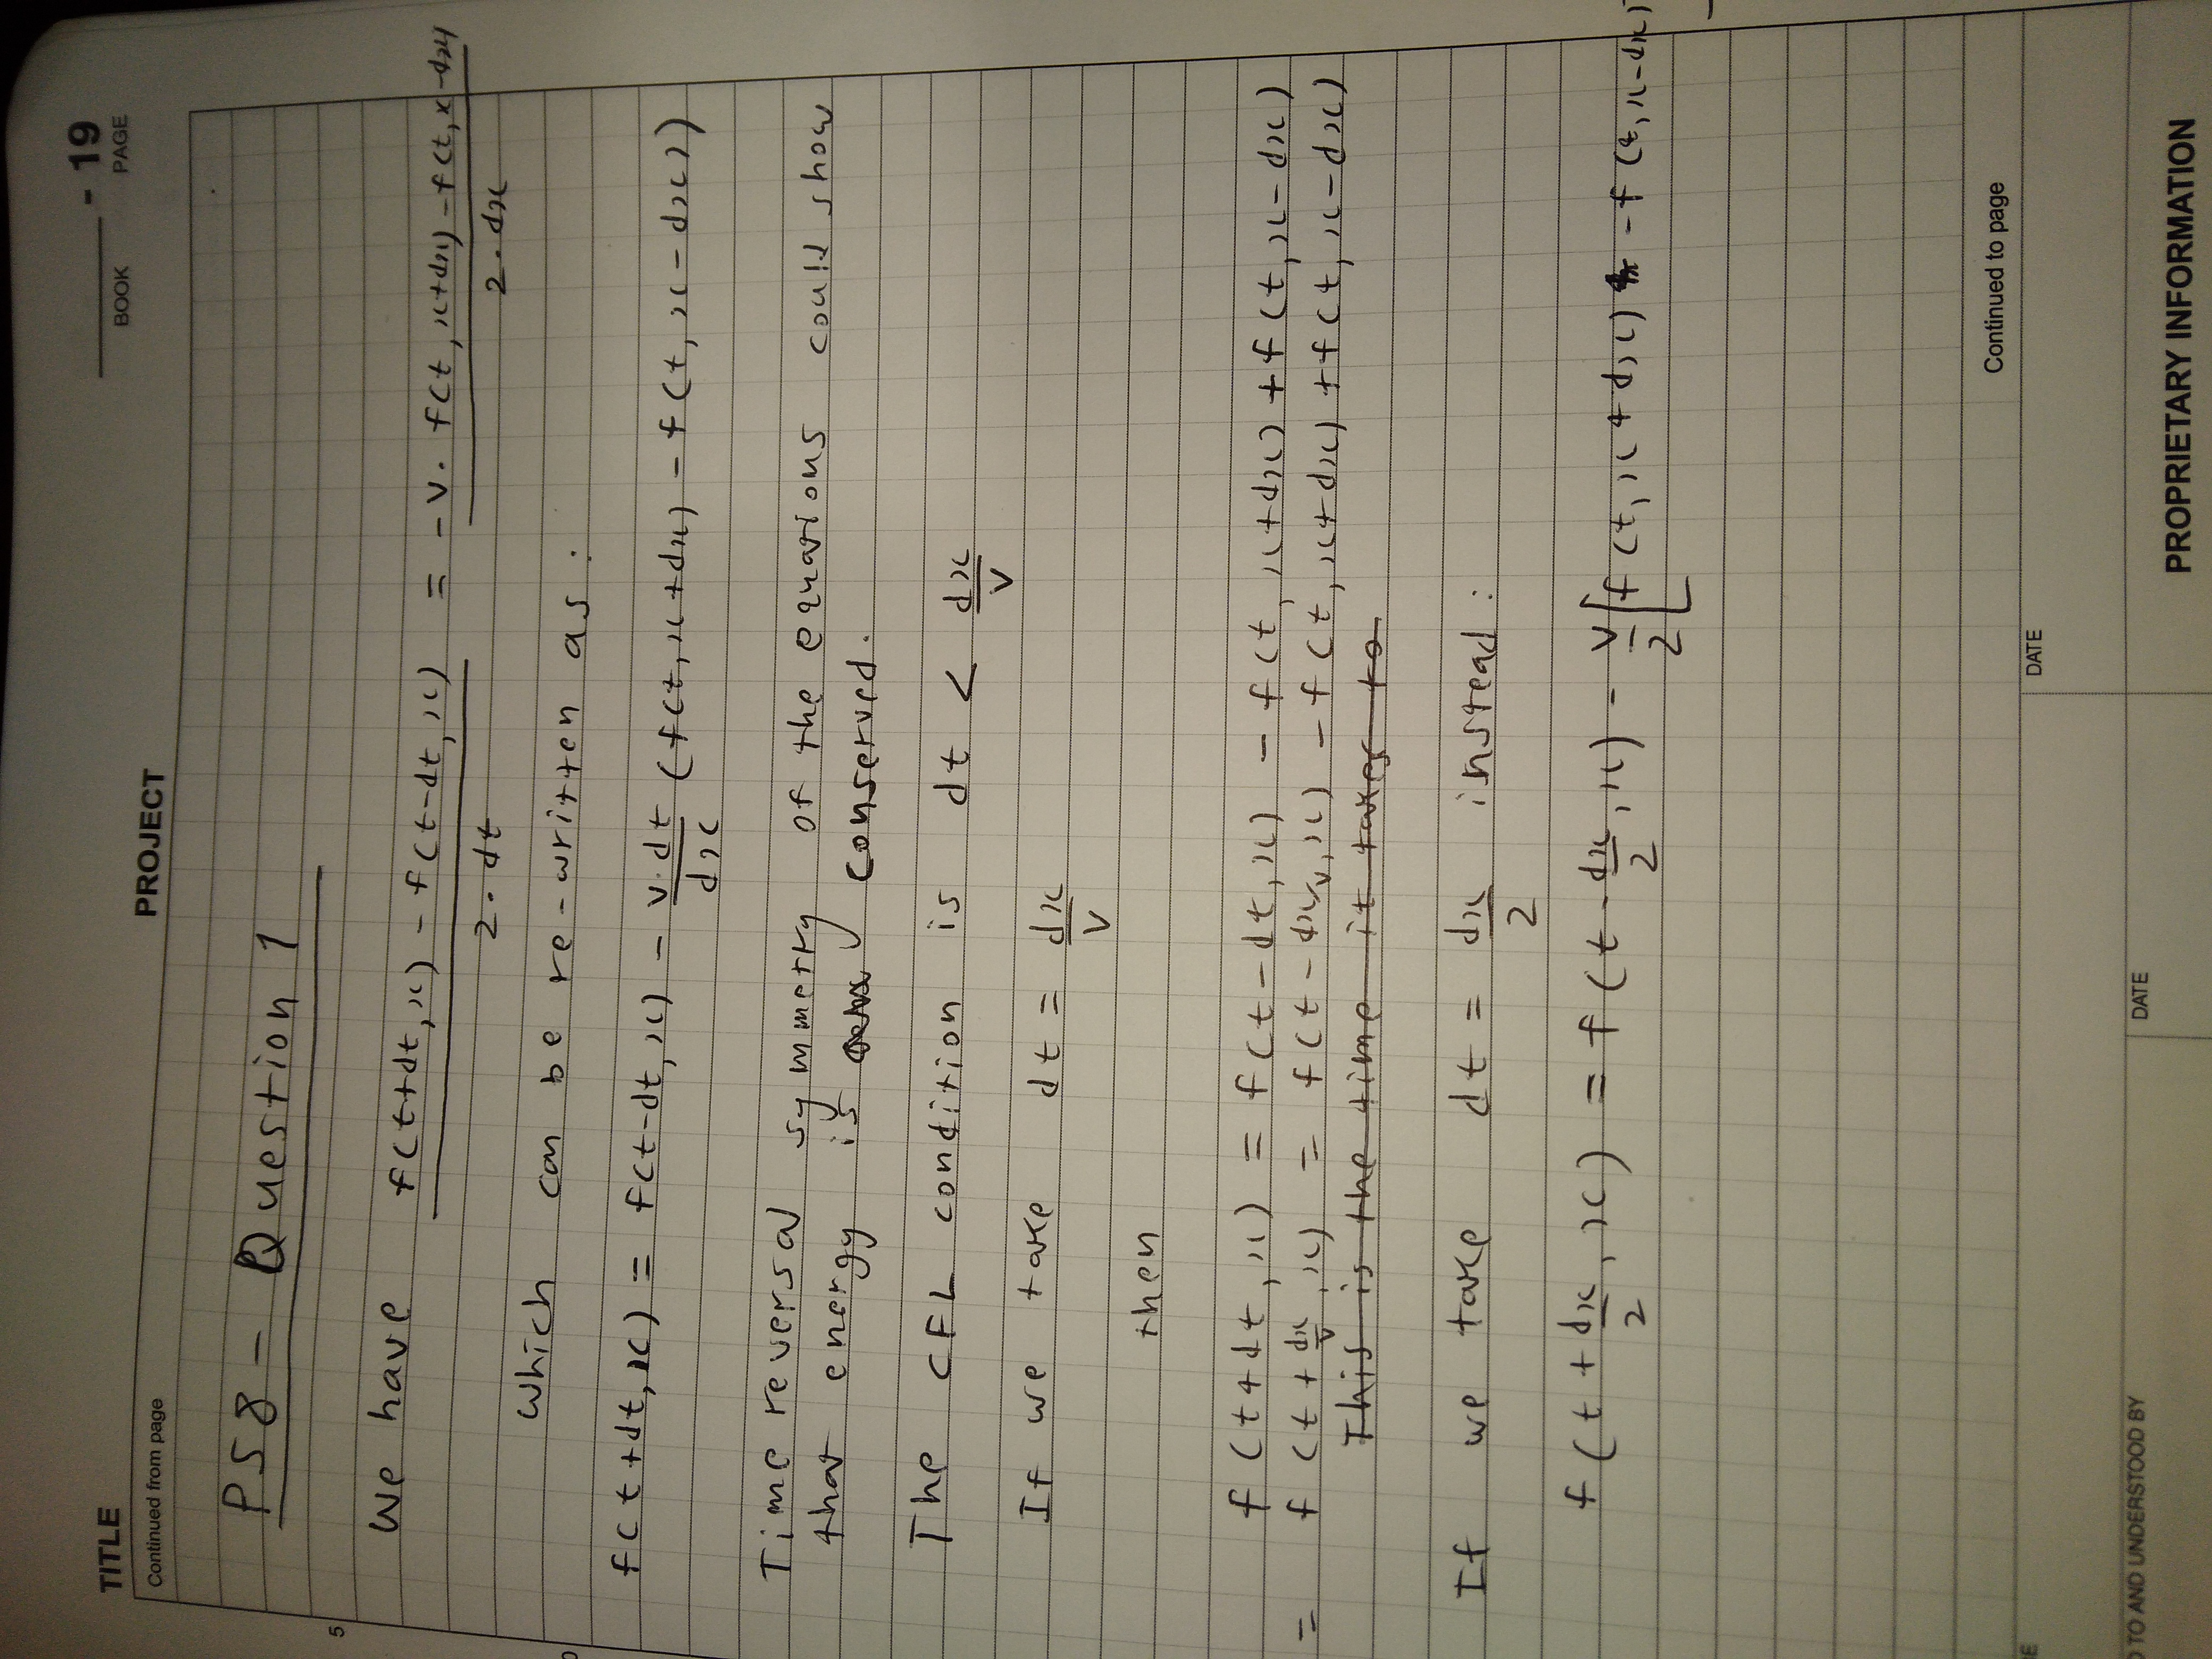 - 19
TITLE
BOOK
PAGE
PROJECT
Continued from page
PS8 - Question 1
5
We have f(t+dt, x) - f(t-dt, x) / 2·dt = -v· f(t, x+dx) - f(t, x-dx) / 2·dx
which can be re-written as:
f(t+dt, x) = f(t-dt, x) - v·dt/dx (f(t, x+dx) - f(t, x-dx))
Time reversal symmetry of the equations could show
that energy is conserved.
The CFL condition is dt < dx/v
If we take dt = dx/v
then
f(t+dt, x) = f(t-dt, x) - f(t, x+dx) + f(t, x-dx)
= f(t+dx/v, x) = f(t-dx/v, x) - f(t, x+dx) + f(t, x-dx)
This is the time it takes to
If we take dt = dx/2 instead:
f(t+dx/2, x) = f(t-dx/2, x) - v/2[f(t, x+dx) - f(t, x-dx)
Continued to page
DATE
TO AND UNDERSTOOD BY
DATE
PROPRIETARY INFORMATION